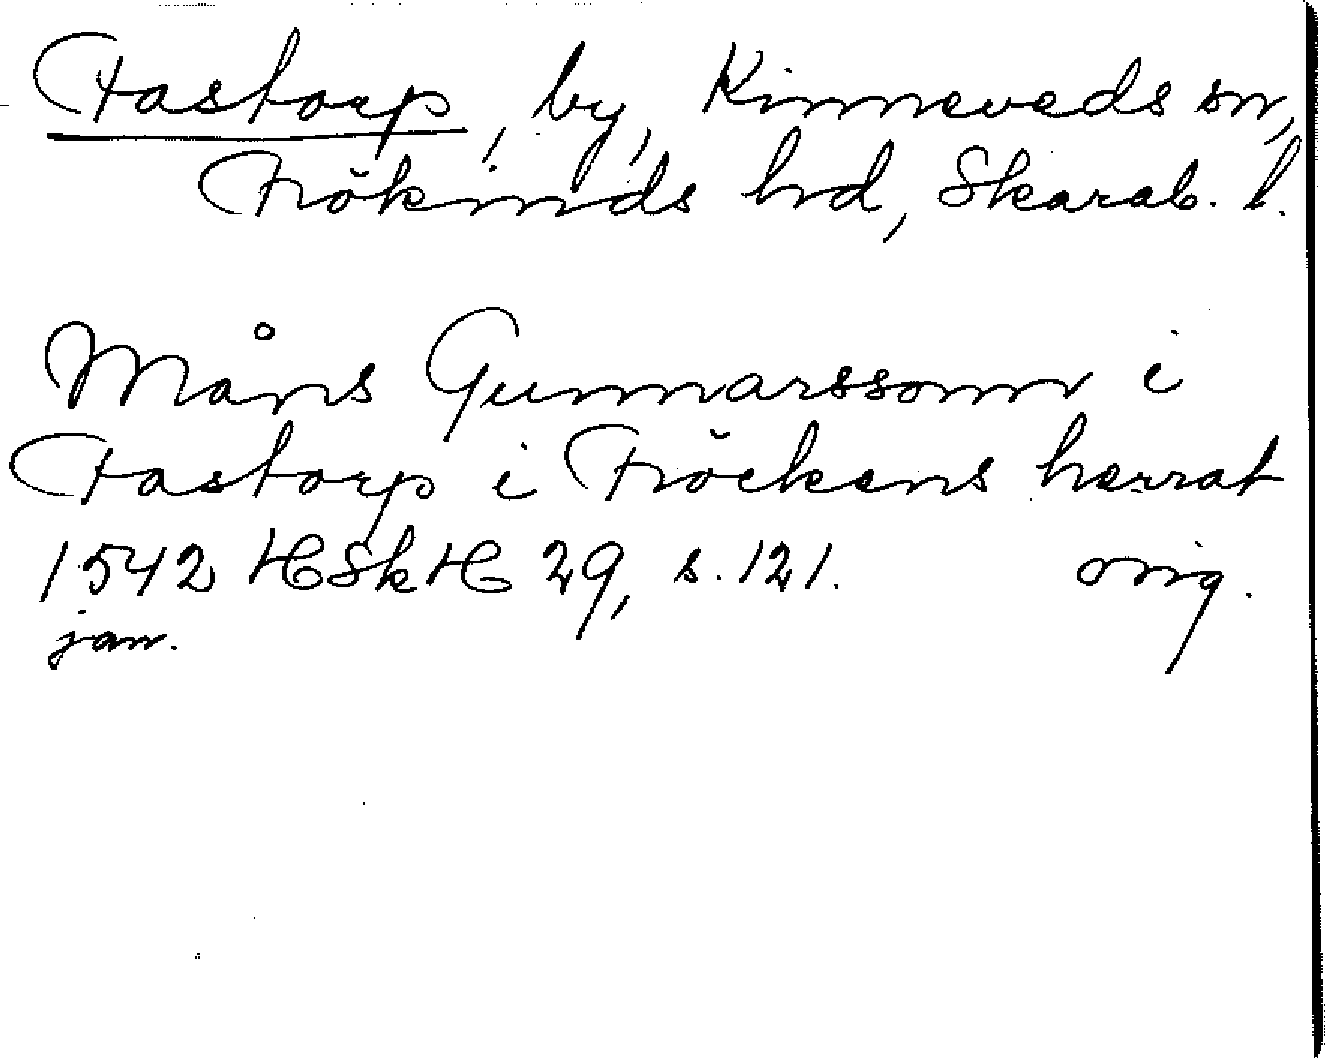 Fastarp, by, Kinneveds sn,
Frökinds hd, Skarab. l.
Måns Gunnarssonn i
Fastarp i Fröckens herrat
1542 HSkH 29, s. 121. orig.
jan.